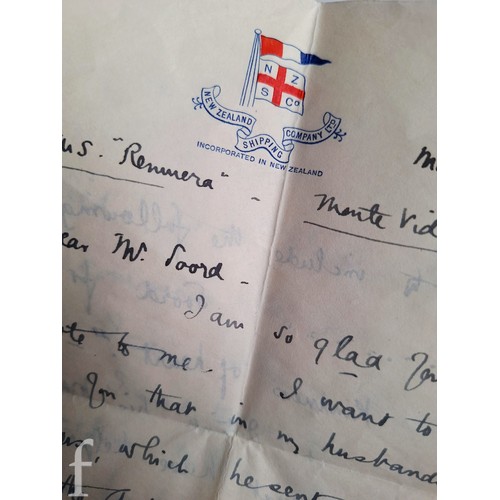 N Z
S Co
NEW ZEALAND SHIPPING COMPANY LTD
INCORPORATED IN NEW ZEALAND
S. "Remuera" -
Monte Vid
ear Mr. Foord -
I am so glad you
te to me. I want to
you that in my husband
us, which he sent
f